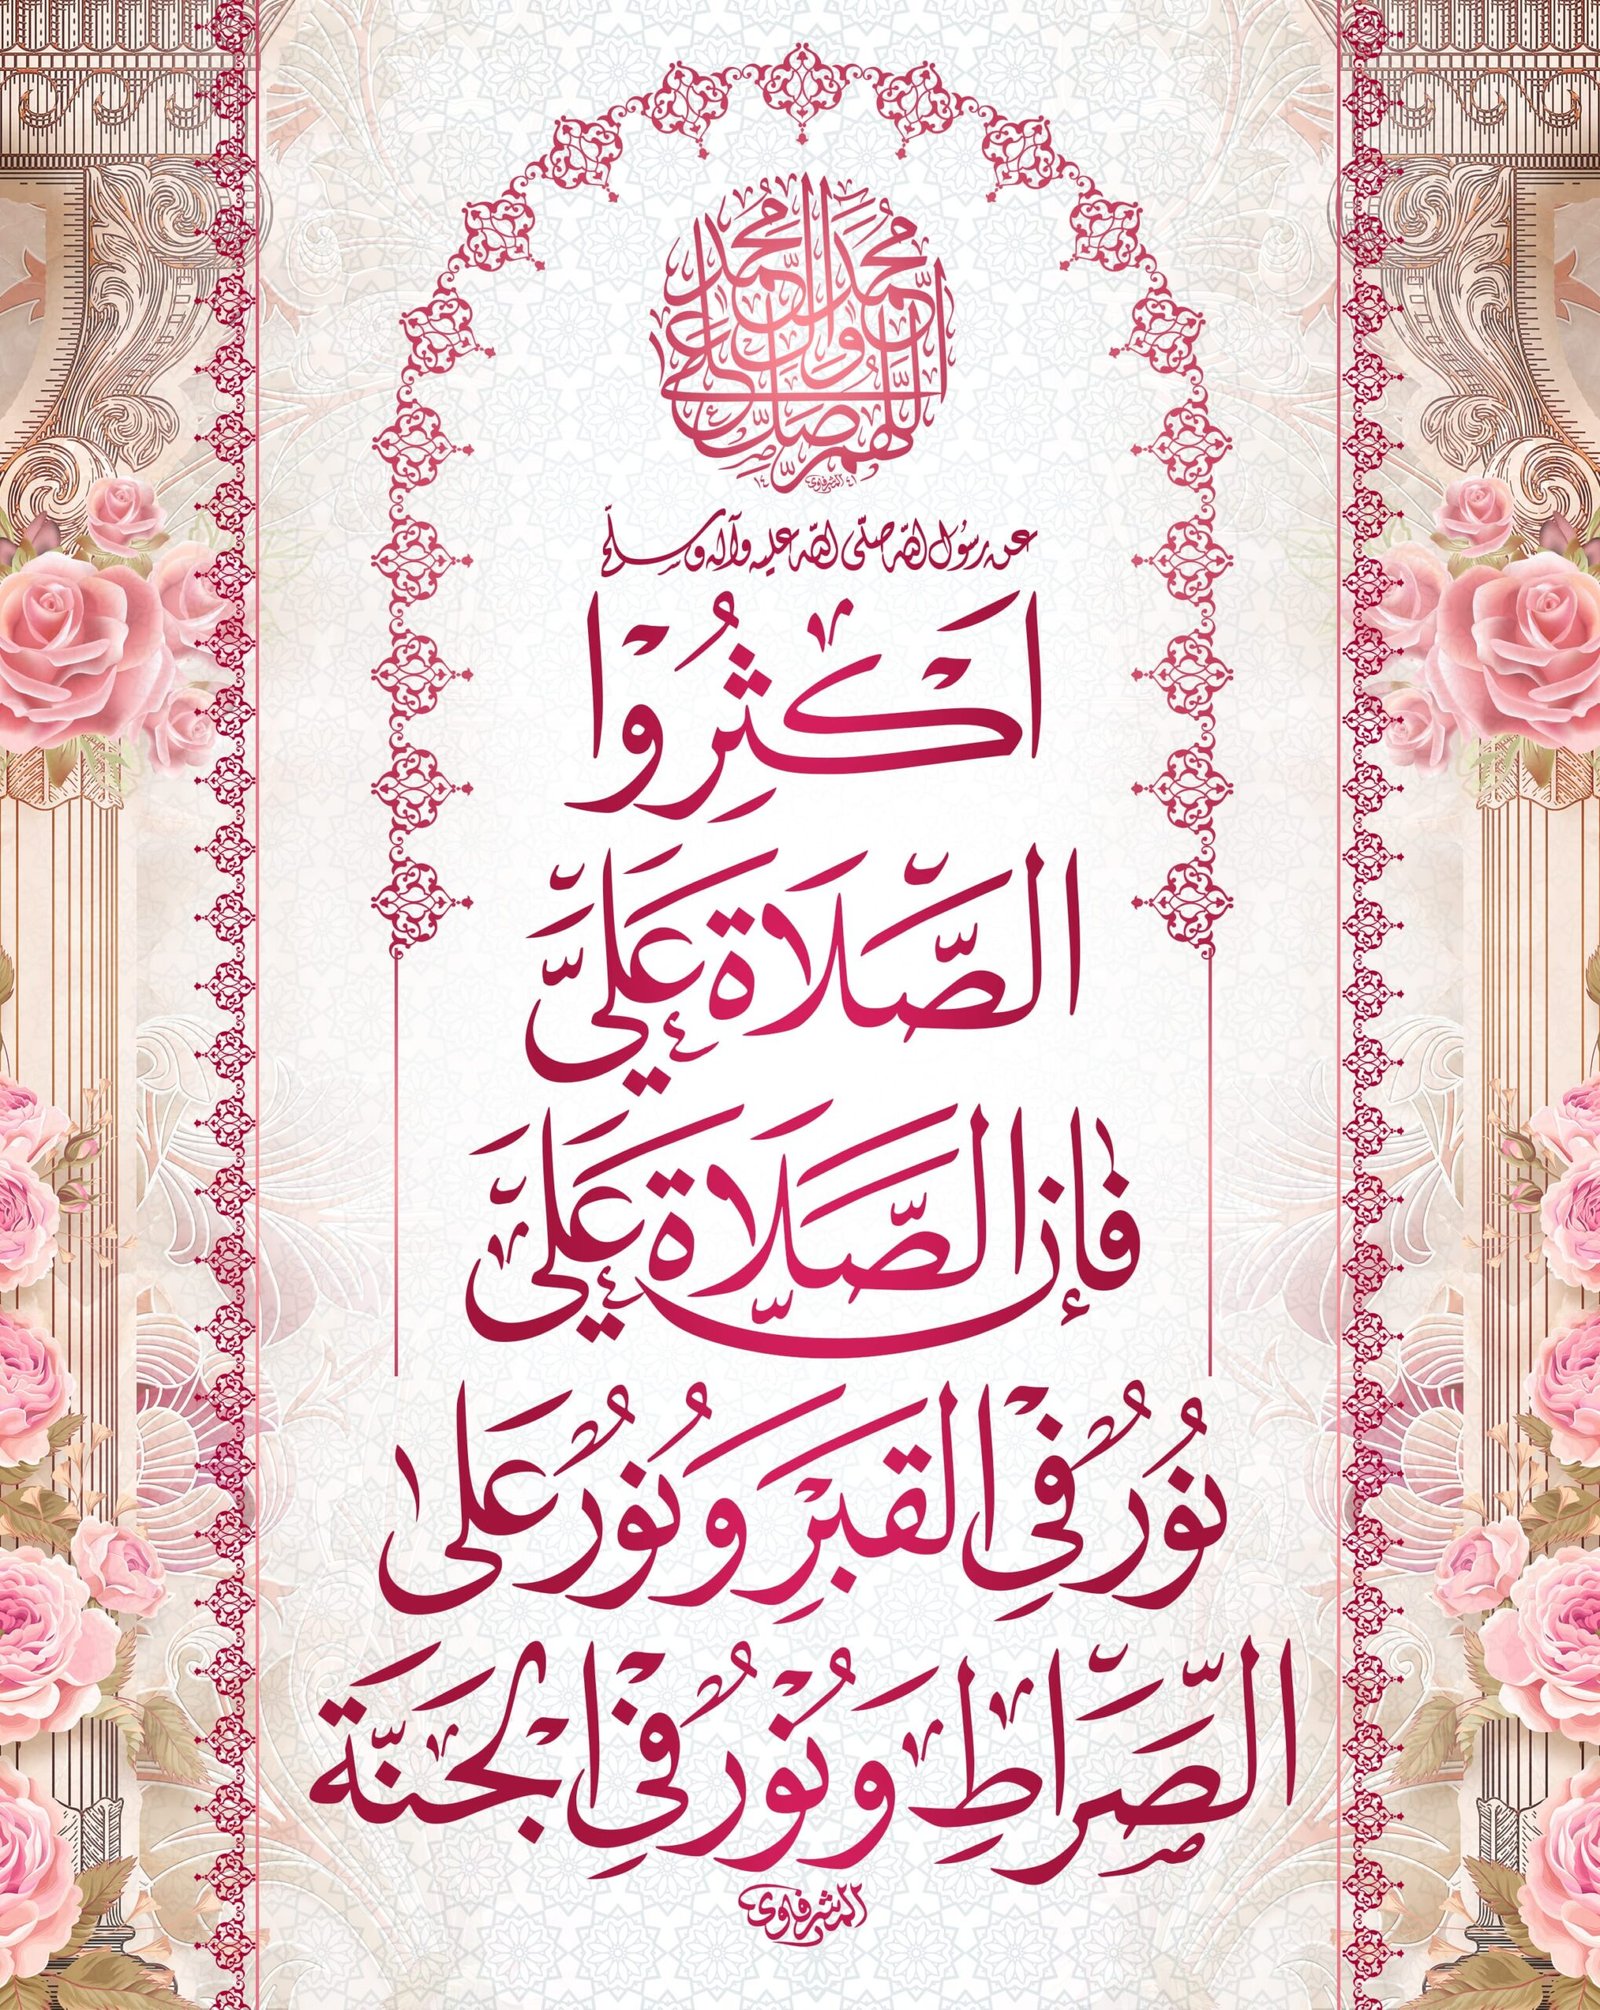 اللهم صل على محمد وآل محمد
عن رسول الله صلّى الله عليه وآله وسلّم
اَكْثِرُوْا
الصَّلَاةَ عَلَيَّ
فإنَّ الصَّلَاةَ عَلَيَّ
نُوْرٌ فِيْ القَبْرِ وَنُوْرٌ عَلى
الصِّرَاطِ وَنُوْرٌ فِيْ الجَنَّة
المشرفاوي